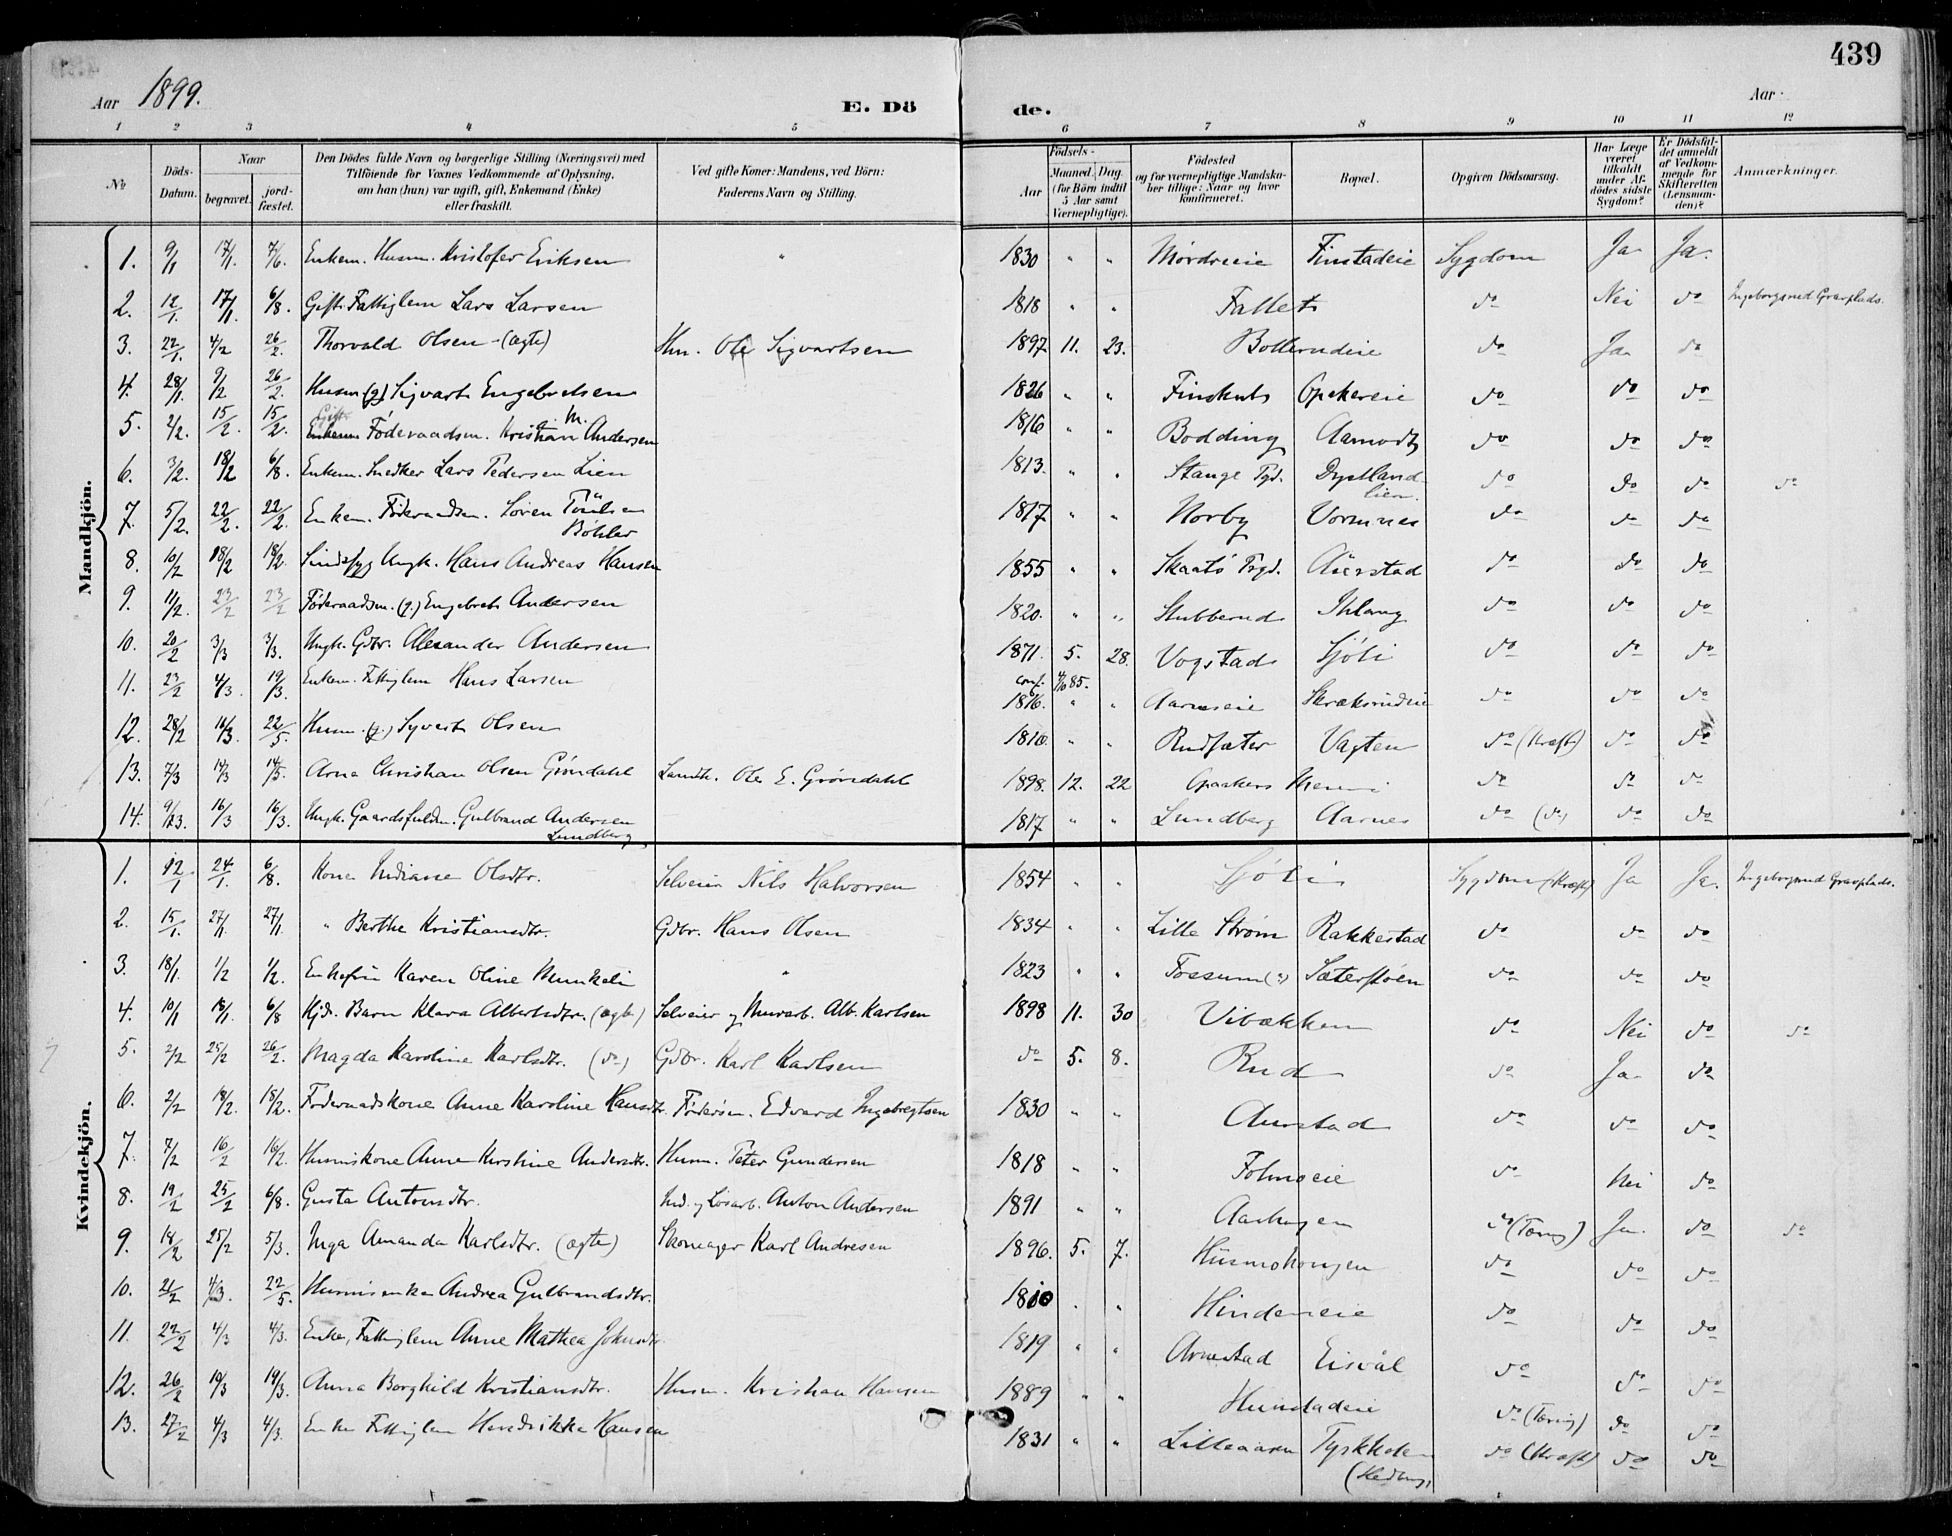 439
Aar 1899. E. Dö de. Aar
1 2 3 4 5 6 7 8 9 10 11 12
№ Döds-Datum. Naar begravet. jordfæstet. Den Dödes fulde Navn og borgerlige Stilling (Næringsvei) med Tilföiende for Voxnes Vedkommende af Oplysning, om han (hun) var ugift, gift, Enkemand (Enke) eller fraskilt. Ved gifte Koner: Mandens, ved Börn: Faderens Navn og Stilling. Födsels- Aar Maaned. Dag. (for Börn indtil 5 Aar samt Værnepligtige). Födested og for værnepligtige Mandskaber tillige: Naar og hvor konfirmeret. Bopæl. Opgiven Dödsaarsag. Har Læge været tilkaldt under Afdödes sidste Sygdom? Er Dödsfaldet anmeldt af Vedkommende for Skifteretten (Lensmanden)? Anmærkninger.
Mandkjön.
1. 9/1 17/1. 7/6. Enkem. Husm. Kristofer Eriksen " 1830 " " Mordreeie Finstadeie Sygdom Ja Ja.
2. 12/1. 17/1. 6/8. Gift Fattiglem Lars Larsen 1818 " " Fallet do Nei do Ingeborgsrud Gravplads.
3. 22/1. 4/2 26/2. Thorvald Olsen (ægte) Hm. Ole Sigvartsen 1897 11. 23. Bollerudeie do Ja do
4. 28/1. 9/2 26/2. Husm (g) Sigvart Engebretsen 1826 " " Finskut Opakereie do do do
5. 2/2. 15/2. 15/2. Gift Föderaadsm. Kristian M. Andersen 1816 " " Bodding Aamodt do do do
6. 3/2. 18/2 6/8. Enkem. Snedker Lars Pedersen Lien 1813. " " Stange Pgd. Dystlandlien. do do do do
7. 5/2. 22/2. 22/2. Enkem. Föderaadsm. Soren Böhler 1817 " " Norby Vormnes do do do
8. 10/2 18/2 18/2. Sindssyg Ungk. Hans Andreas Hansen 1855 " " Skaatö Pgd. Auerstad do do do
9. 11/2. 23/2 23/2 Föderaadsm. (g.) Engebret Andersen 1820. " " Stubberud Ihlang do do do
10. 20/2 3/3 3/3. Ungk. Gdbr. Alexander Andersen 1871. 5. 28. Vogstad Sjöli do do do
conf. 4/10 85.
11. 23/2 4/3. 19/3. Enkem. Fattiglem Hans Larsen 1816. " " Aarneseie Skræksrudeie do do do
12. 28/2 14/3. 22/5. Husm. (g.) Syvert Olsen 1810. " " Rudsæter Vagten do (Kræft) do do
13. 7/3 14/3 14/5. Arne Christian Olsen Gröndahl Landh. Ole E. Gröndahl 1898. 12. 22 Opaakers Meieri do do do
14. 9/3. 16/3 16/3. Ungk. Gaardsfuldm. Gulbrand Andersen Lundberg 1817 " " Lundberg Aarnes do (do) do do
Kvindekjön.
1. 12/1 24/1. 6/8. Kone Indiane Olsdtr. Selveier Nils Halvorsen 1854 " " Sjöli Sygdom (Kræft) Ja Ja. Ingeborgsrud Gravplads.
2. 15/1. 27/1 27/1. " Berthe Kristiansdtr. Gdbr. Hans Olsen 1834 " " Lille Ström Rakkestad do do do
3. 18/1 1/2 1/2. Enkefru Karen Oline Munkeli " 1823 " " Fossum (?) Sæterstöen do do do
4. 10/1 18/1. 6/8 Hjd. Barn Klara Albertsdtr. (ægte) Selveier og Murarb. Alb. Karlsen 1898 11. 30 Vibækken do Nei do do
5. 2/2 25/2 26/2. Magda Karoline Karlsdtr. (do) Gdbr. Karl Karlsen do 5. 8. Rud do Ja do
6. 2/2 18/2. 18/2. Föderaadskone Anne Karoline Hansdtr. Föderm. Edvard Ingebregtsen 1830 " " Aurstad do do do
7. 7/2 16/2 16/2. Husmiskone Anne Kirstine Andersdtr. Husm. Peter Gundersen 1818 " " Folmoeie do Nei do
8. 19/2 25/2 6/8. Gusta Antonsdtr. Ind. og Lösarb. Anton Andersen 1891 " " Aashagen do (Tæring) Ja do do
9. 18/2 25/2 5/3. Inga Amanda Karlsdtr. (ægte) Skomager Karl Andresen 1896. 5. 7. Husmohougen do do do
10. 21/2 4/3. 22/5. Husmisenke Andrea Gulbrandsdtr. 1810 " " Hindeneie do do do
11. 22/2 4/3 4/3. Enke, Fattiglem Anne Mathea Johnsdtr. 1819 " " Arnestad Eisvål do do do
12. 26/2 19/3 19/3. Anna Borghild Kristiansdtr. Husm. Kristian Hansen 1889 " " Hunstadeie do (Tæring) do do
13. 27/2 4/3 4/3. Enke Fattiglem Hendrikke Hansen 1831 " " Lilleaasen Tyskholen (Hedmg) do (Kræft) do do